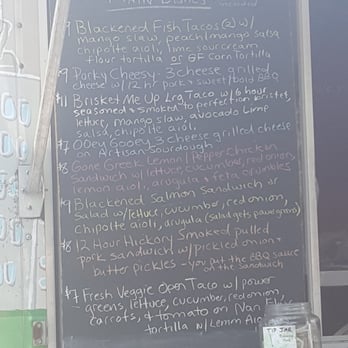 Main Dishes
$9 Blackened Fish Tacos (2) w/
mango slaw, peach/mango salsa
chipolte aioli, lime sour cream
flour tortilla or GF Corn Tortilla
$9 Porky Cheesy - 3 cheese grilled
cheese w/ 12 hr pork & sweet/bold BBQ
$11 Brisket Me Up Lrg Taco w/ 16 hour
seasoned & smoked to perfection brisket,
lettuce, mango slaw, avocado lime
salsa, chipolte aioli.
$7 Ooey Gooey 3 cheese grilled cheese
on Artisan Sourdough
$8 Gone Greek Lemon/Pepper Chicken
Sandwich w/ lettuce, cucumber, red onion,
lemon aioli, arugula & feta crumbles
$9 Blackened Salmon Sandwich or
Salad w/ lettuce, cucumber, red onion,
chipolte aioli, arugula (salad gets power greens)
$8 12 Hour Hickory Smoked pulled
pork sandwich w/ pickled onion &
butter pickles - you put the BBQ sauce
on the sandwich
$7 Fresh Veggie Open Taco w/ power
greens, lettuce, cucumber, red onion
carrots, & tomato on Nan
tortilla w/ Lemon Aioli
TIP JAR